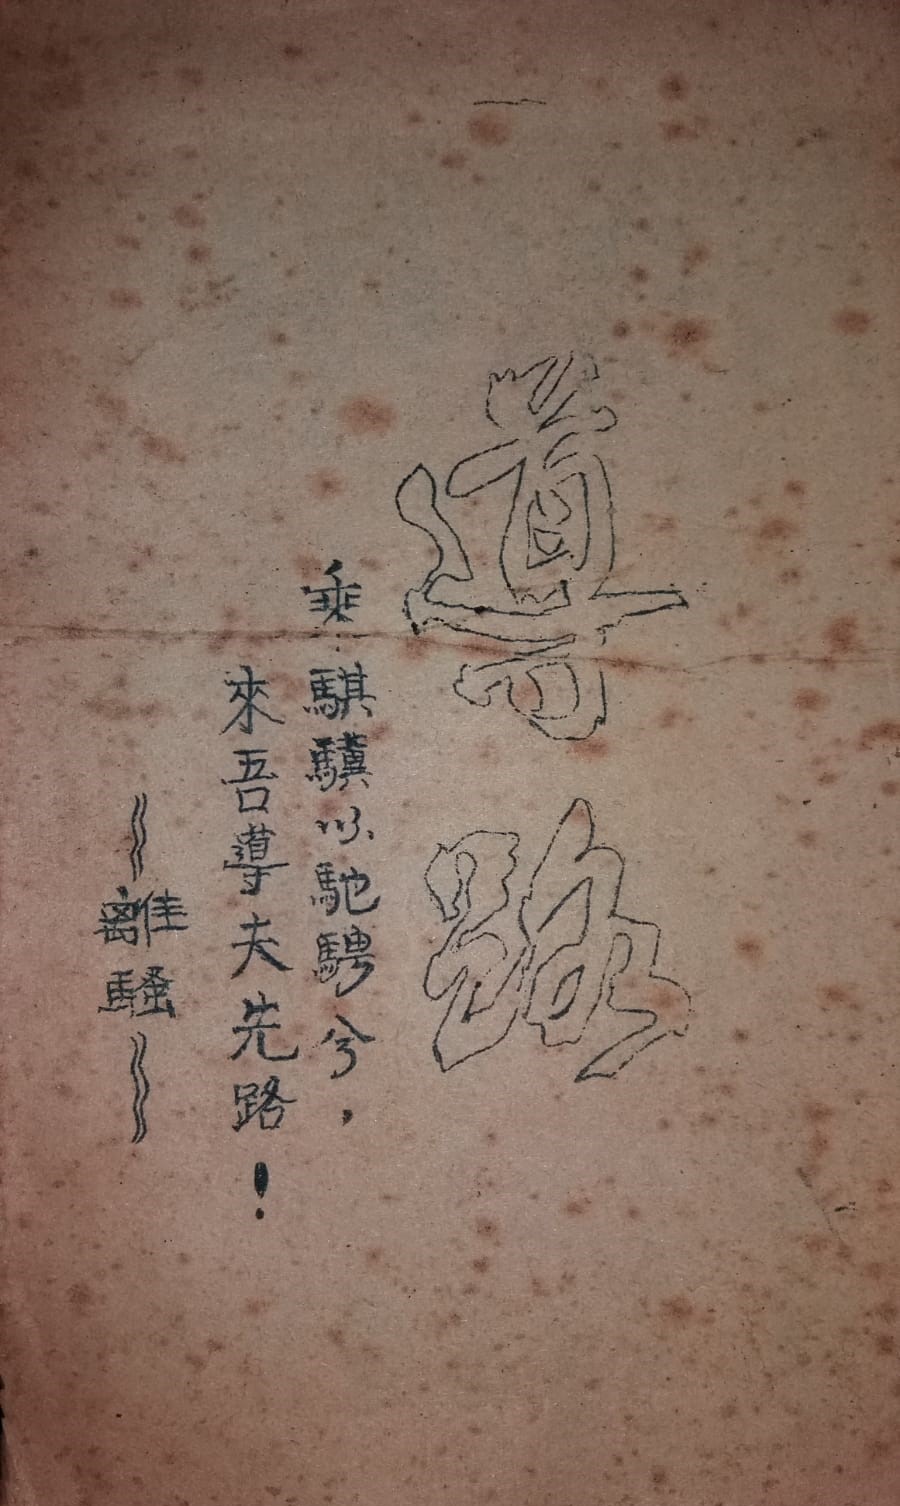 導路
乘騏驥以馳騁兮，
來吾導夫先路！
離騷